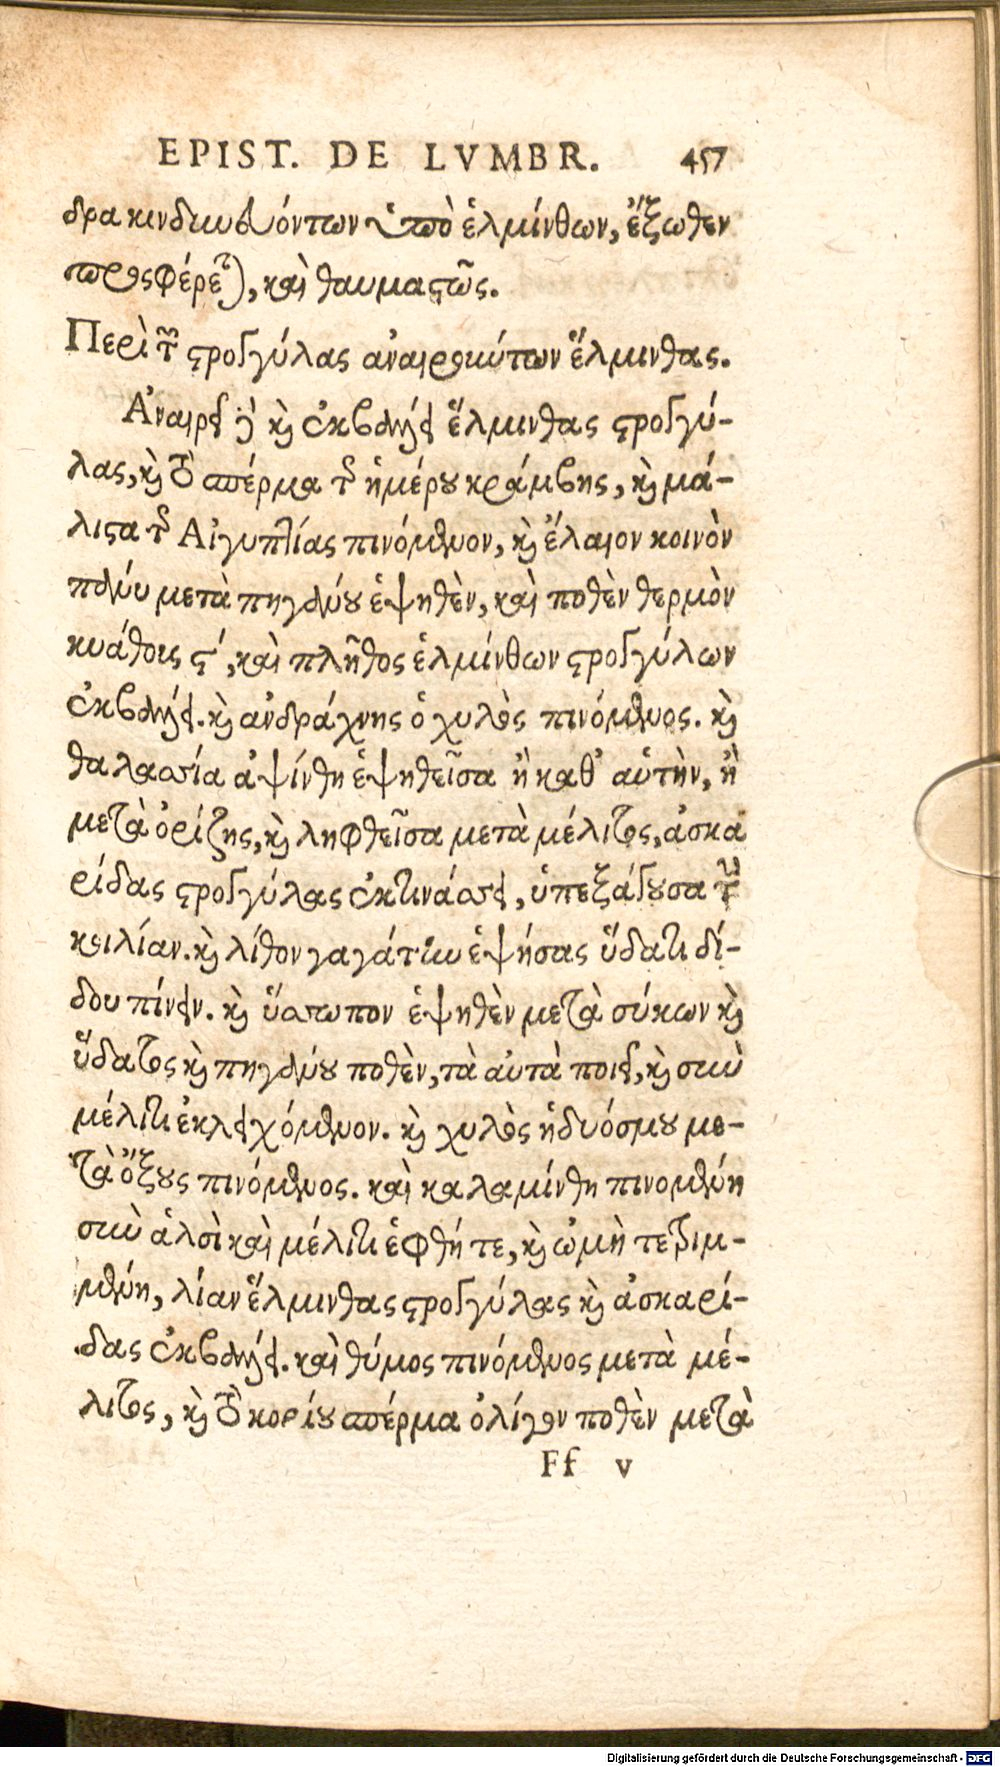 EPIST. DE LVMBR. 457
δρα κινδυνευόντων ὑπὸ ἑλμίνθων, ἔξωθεν
προσφέρεται, καὶ θαυμαστῶς.
Περὶ τῶν στρογγύλας ἀναιρούντων ἕλμινθας.
Ἀναιρεῖ δὲ καὶ ἐκβάλλει ἕλμινθας στρογγύ-
λας, καὶ τὸ σπέρμα τῆς ἡμέρου κράμβης, καὶ μά-
λιστα τῆς Αἰγυπτίας πινόμενον, καὶ ἔλαιον κοινὸν
πολὺ μετὰ πηγάνου ἑψηθὲν, καὶ ποθὲν θερμὸν
κυάθοις ϛ´, καὶ πλῆθος ἑλμίνθων στρογγύλων
ἐκβάλλει. καὶ ἀνδράχνης ὁ χυλὸς πινόμενος. καὶ
θαλασσία ἀψίνθη ἑψηθεῖσα ἢ καθ' αὑτὴν, ἢ
μετὰ ὀρίζης, καὶ ληφθεῖσα μετὰ μέλιτος, ἀσκα
ρίδας στρογγύλας ἐκτινάσσει, ὑπεξάγουσα τὴν
κοιλίαν. καὶ λίθον γαγάτην ἑψήσας ὕδατι δί-
δου πίνειν. καὶ ὕσσωπον ἑψηθὲν μετὰ σύκων καὶ
ὕδατος καὶ πηγάνου ποθὲν, τὰ αὐτὰ ποιεῖ, καὶ σὺν
μέλιτι ἐκλειχόμενον. καὶ χυλὸς ἡδυόσμου με-
τὰ ὄξους πινόμενος. καὶ καλαμίνθη πινομένη
σὺν ἁλσὶ καὶ μέλιτι ἑφθή τε, καὶ ὠμὴ τετριμ-
μένη, λίαν ἕλμινθας στρογγύλας καὶ ἀσκαρί-
δας ἐκβάλλει. καὶ θύμος πινόμενος μετὰ μέ-
λιτος, καὶ τὸ κορίου σπέρμα ὀλίγον ποθὲν μετὰ
Ff v
Digitalisierung gefördert durch die Deutsche Forschungsgemeinschaft - DFG